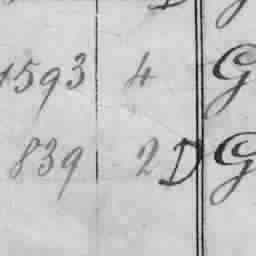 1593 4 G
839 2 D G